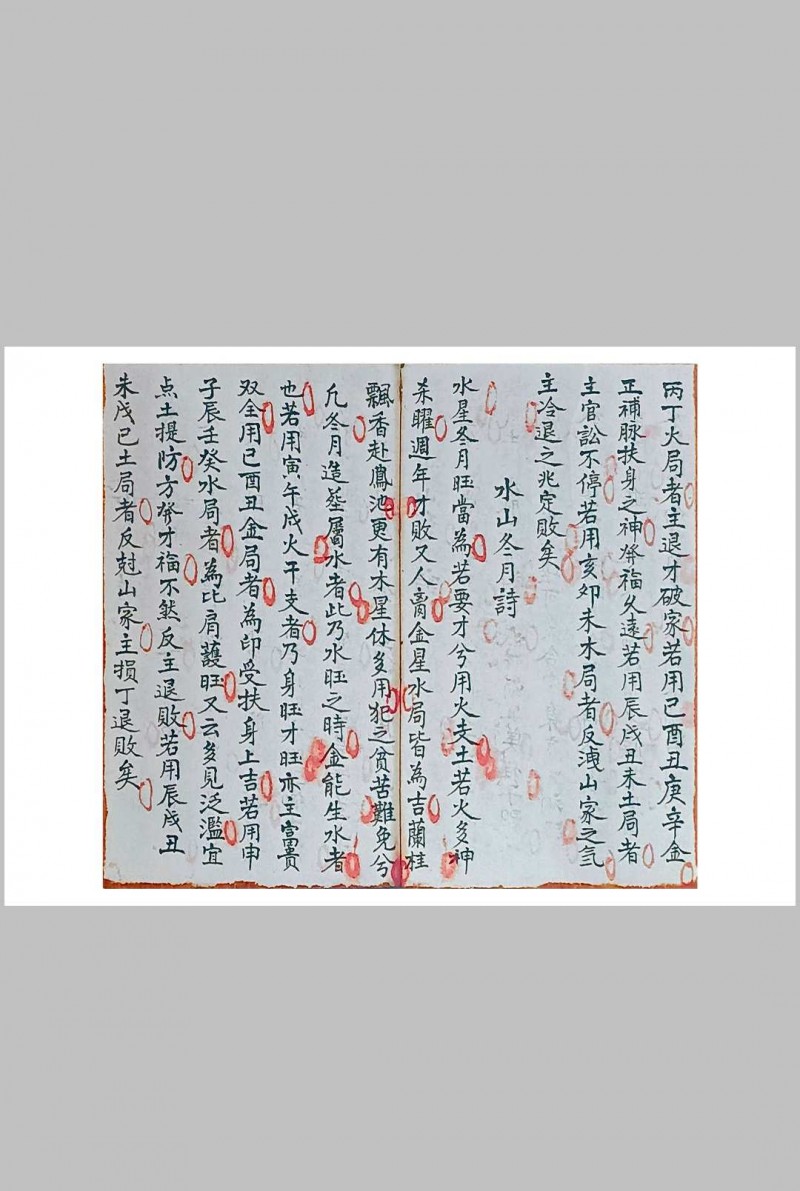 丙丁火局者主退才破家若用巳酉丑庚辛金
正補脉扶身之神發福久遠若用辰戌丑未土局者
主官訟不停若用亥卯未木局者反洩山家之氣
主冷退之兆定敗矣
水山冬月詩
水星冬月旺當為若要才兮用火支土若火多神
杀曜週年才敗又人离金星水局皆為吉蘭桂
飄香赴鳳池更有木星休多用犯之貧苦難免兮
凢冬月造塟屬水者此乃水旺之時金能生水者
也若用寅午戌火干支者乃身旺才旺亦主富貴
双全用巳酉丑金局者為印受扶身上吉若用申
子辰壬癸水局者為比肩護旺又云多見泛濫宜
点土提防方發才福不然反主退敗若用辰戌丑
未戊己土局者反尅山家主损丁退敗矣